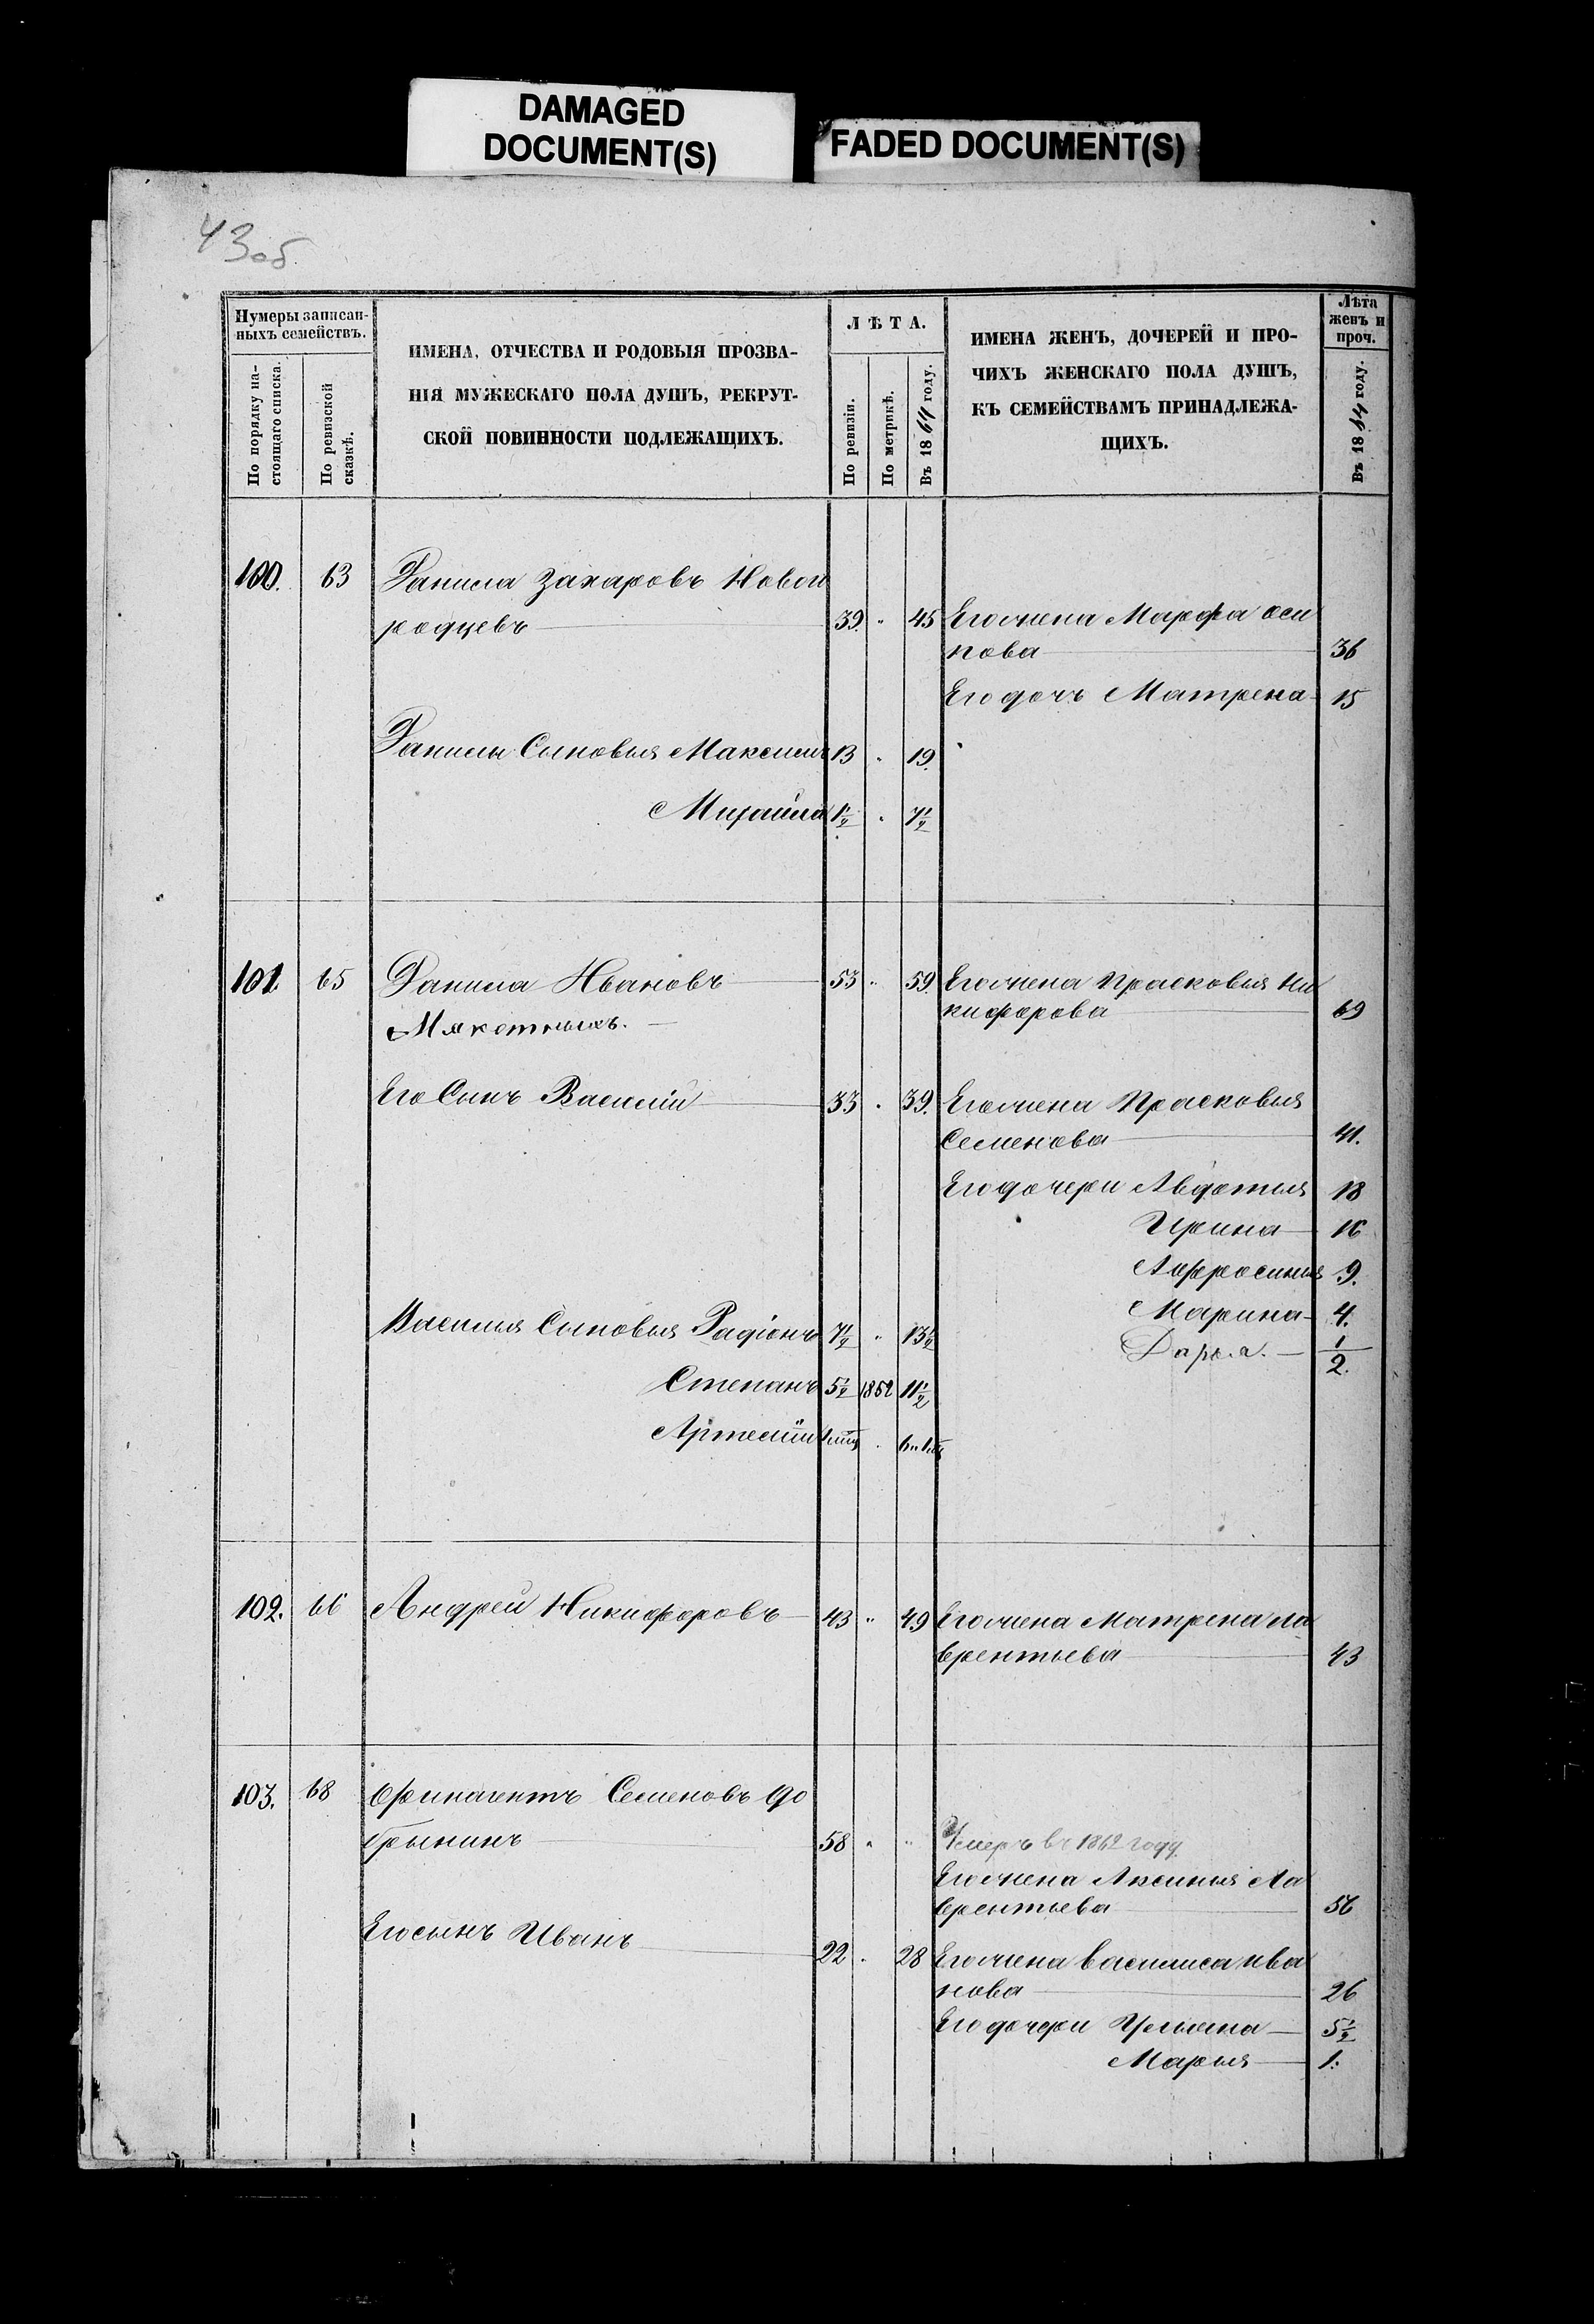 DAMAGED
DOCUMENT(S)
FADED DOCUMENT(S)
43 об.
Нумеры записан-
ныхъ семействъ.
По порядку на-
стоящаго списка.
По ревизской
сказкѣ.
ИМЕНА, ОТЧЕСТВА И РОДОВЫЯ ПРОЗВА-
НІЯ МУЖЕСКАГО ПОЛА ДУШЪ, РЕКРУТ-
СКОЙ ПОВИННОСТИ ПОДЛЕЖАЩИХЪ.
ЛѢТА.
По ревизіи.
По метрикѣ.
Въ 1864 году.
ИМЕНА ЖЕНЪ, ДОЧЕРЕЙ И ПРО-
ЧИХЪ ЖЕНСКАГО ПОЛА ДУШЪ,
КЪ СЕМЕЙСТВАМЪ ПРИНАДЛЕЖА-
ЩИХЪ.
Лѣта
женъ и
проч.
Въ 1864 году.
100. 63 Данила Захаровъ Новог
родцевъ 39. " 45 Его жена Марфа Оси
пова 36
Его дочь Матрена 15
Данилы Сыновья Максимъ 13 " 19.
Михайла 1½ " 7½
101. 65 Данила Ивановъ 53 " 59. Его жена Прасковья Ни
кифорова 69
Мякотныхъ.
Его Сынъ Василій 33 " 39. Его жена Прасковья
Семенова 41.
Его дочери Авдотья 18
Ирина 16
Афросинья 9.
Марина 4.
Василья Сыновья Радіонъ 7½ " 13½
Дарья. 1/2.
Степанъ 5½ 1852 11½
Артемій
102. 66 Андрей Никифоровъ 43 " 49 Его жена Матрена Ла
врентьева 43
103. 68 Семеновъ До
брынинъ 58 " " Умеръ въ 1862 году
Его жена Аксинья Ла
врентьева 56
Его сынъ Иванъ 22 " 28 Его жена Василиса Ива
нова 26
Его дочери Ульяна 5½
Марья 1.